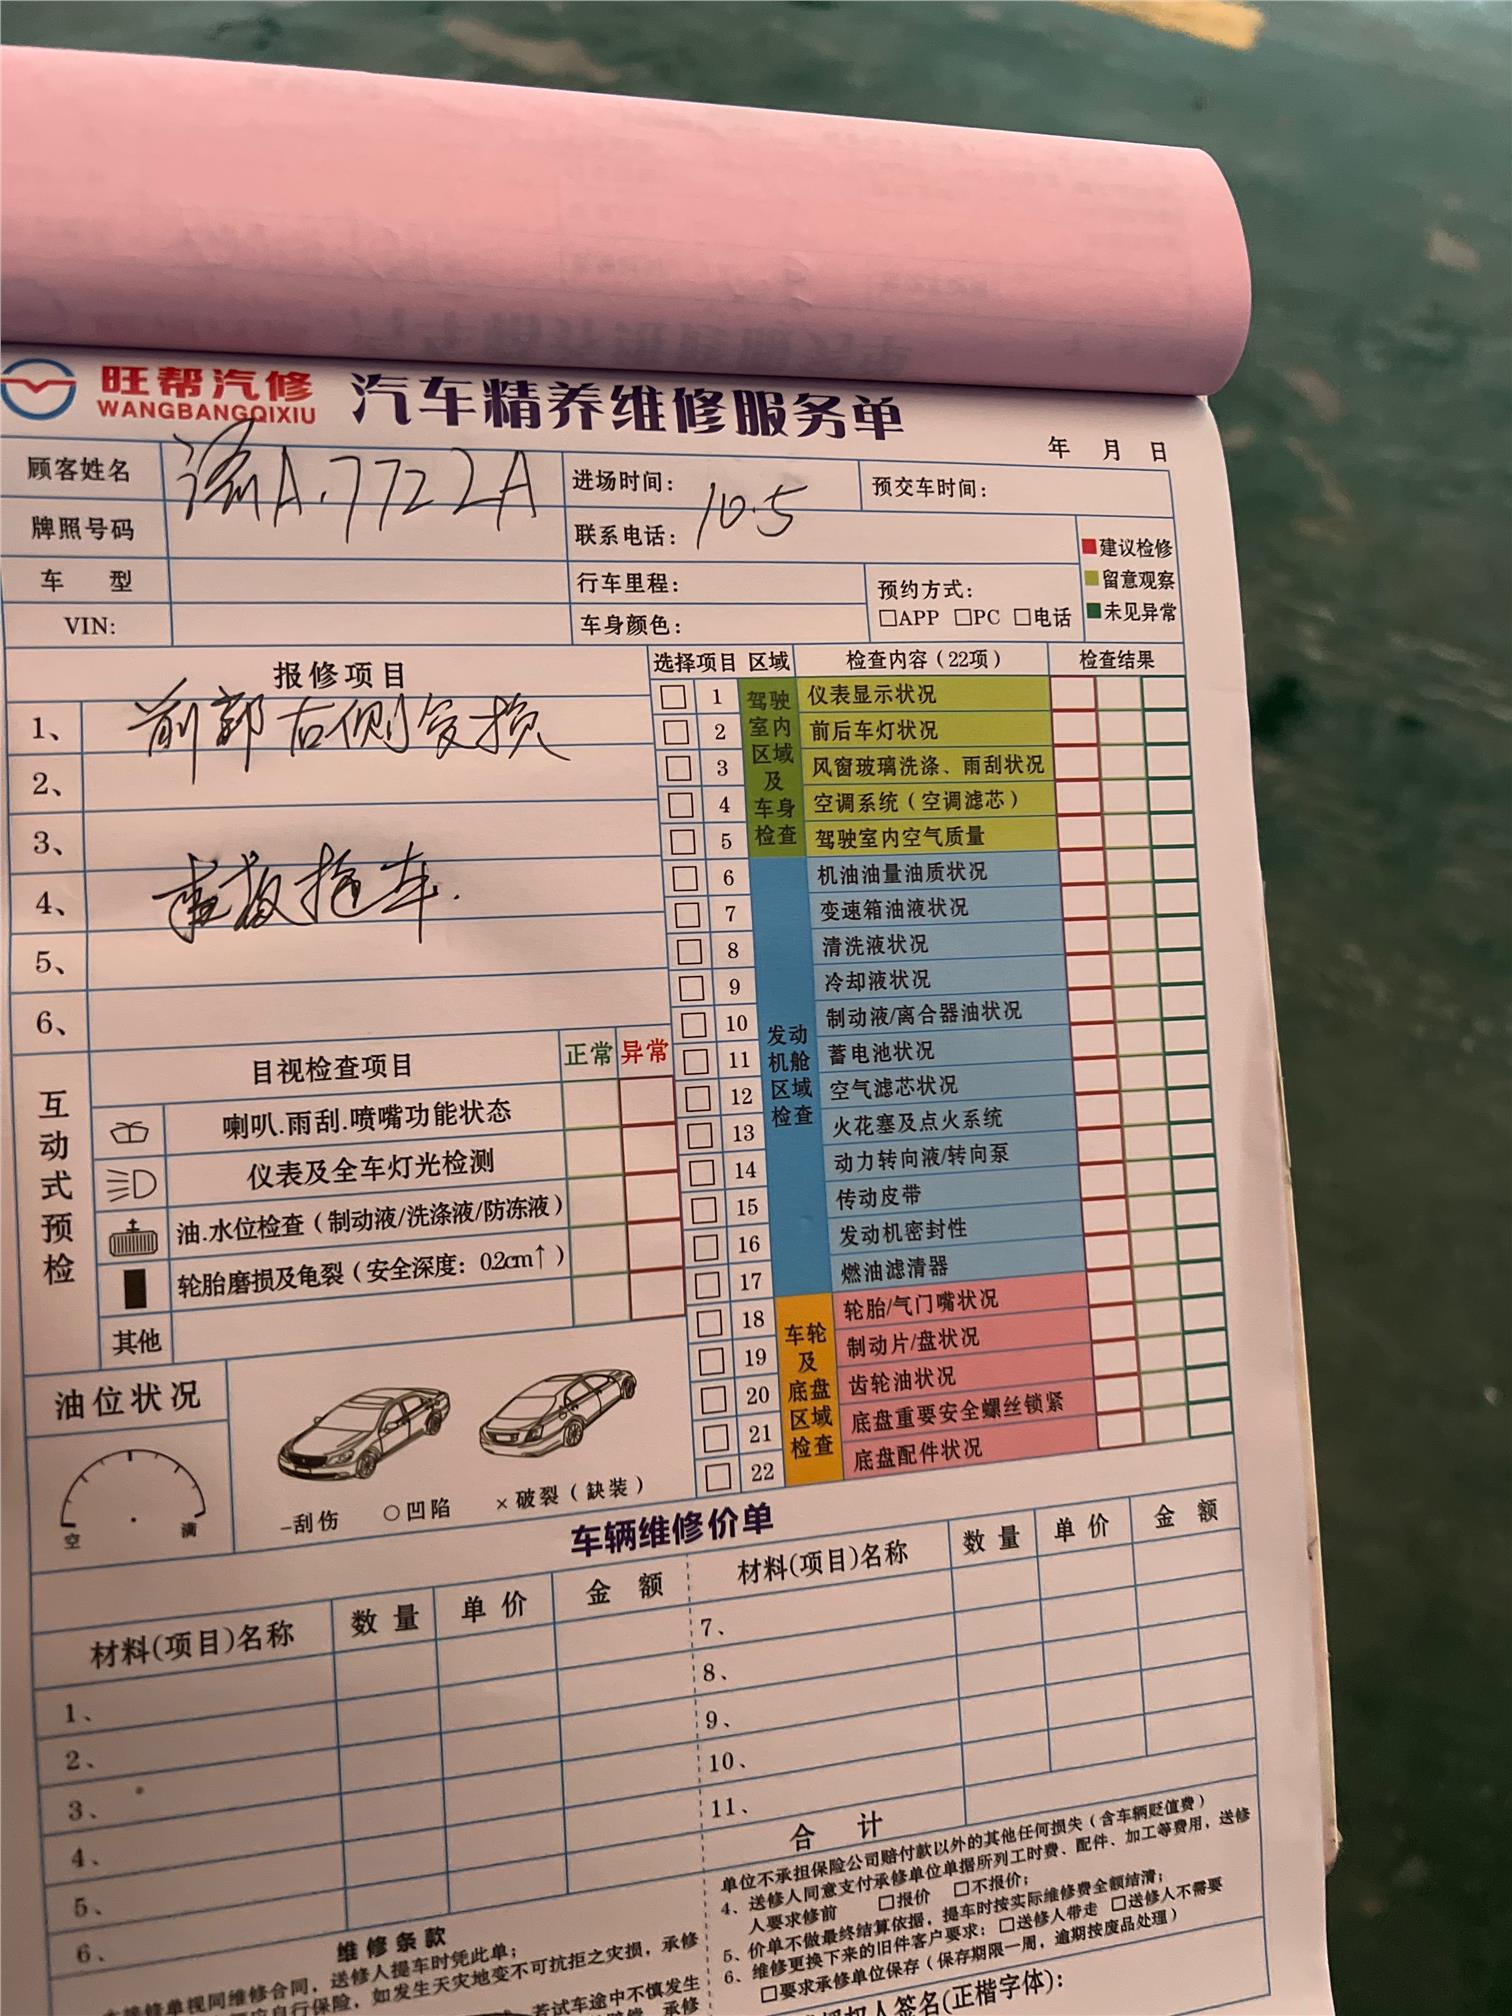 旺帮汽修
WANGBANGQIXIU
汽车精养维修服务单
年 月 日
顾客姓名
A.7722A
进场时间:
10.5
预交车时间:
牌照号码
联系电话:
■建议检修
■留意观察
■未见异常
车 型
行车里程:
预约方式:
□APP □PC □电话
VIN:
车身颜色:
报修项目
1、前部右侧受损
2、
3、
4、 拖车.
5、
6、
选择项目 区域 检查内容(22项) 检查结果
驾驶室内区域及车身检查
□ 1 仪表显示状况
□ 2 前后车灯状况
□ 3 风窗玻璃洗涤、雨刮状况
□ 4 空调系统(空调滤芯)
□ 5 驾驶室内空气质量
发动机舱区域检查
□ 6 机油油量油质状况
□ 7 变速箱油液状况
□ 8 清洗液状况
□ 9 冷却液状况
□ 10 制动液/离合器油状况
□ 11 蓄电池状况
□ 12 空气滤芯状况
□ 13 火花塞及点火系统
□ 14 动力转向液/转向泵
□ 15 传动皮带
□ 16 发动机密封性
□ 17 燃油滤清器
车轮及底盘区域检查
□ 18 轮胎/气门嘴状况
□ 19 制动片/盘状况
□ 20 齿轮油状况
□ 21 底盘重要安全螺丝锁紧
□ 22 底盘配件状况
互动式预检
目视检查项目 正常 异常
喇叭.雨刮.喷嘴功能状态
仪表及全车灯光检测
油.水位检查(制动液/洗涤液/防冻液)
轮胎磨损及龟裂(安全深度: 02cm↑)
其他
油位状况
空 满
-刮伤 ○凹陷 ×破裂(缺装)
车辆维修价单
材料(项目)名称 数量 单价 金额
1、
2、
3、
4、
5、
6、
材料(项目)名称 数量 单价 金额
7、
8、
9、
10、
11、
合 计
维修条款
维修单视同维修合同,送修人提车时凭此单;
应自行保险,如发生天灾地变不可抗拒之灾损,承修
若试车途中不慎发生
承修
单位不承担保险公司赔付款以外的其他任何损失(含车辆贬值费)
4、送修人同意支付承修单位单据所列工时费、配件、加工等费用,送修
人要求修前 □报价 □不报价;
5、价单不做最终结算依据,提车时按实际维修费全额结清;
6、维修更换下来的旧件客户要求: □送修人带走 □送修人不需要
□要求承修单位保存(保存期限一周,逾期按废品处理)
人签名(正楷字体):